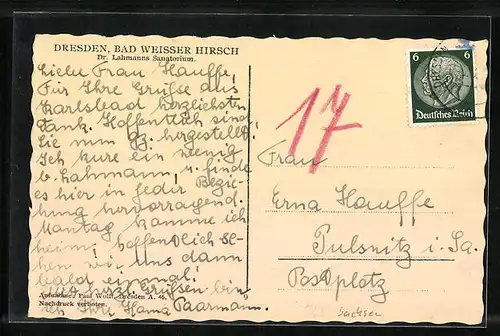 DRESDEN, BAD WEISSER HIRSCH
Dr. Lahmanns Sanatorium.
Liebe Frau Hauffe,
Für Ihre Grüsse aus
Karlsbad herzlichsten
Dank. Hoffentlich sind
Sie nun gz. hergestellt.
Ich kure ein wenig
b. Lahmann, u. finde
es hier in jeder Bezie-
hung hervorragend.
Montag komme ich
heim, hoffentlich se-
hen wir uns dann
bald einmal!
Grüssen bin
ich Ihre Hama Paarmann.
Aufnahme: Paul Wolff, Dresden A. 46.
Nachdruck verboten.
6 6
Deutsches Reich
17
Frau
Erna Hauffe
Pulsnitz i. Sa.
Postplatz
Sachsen